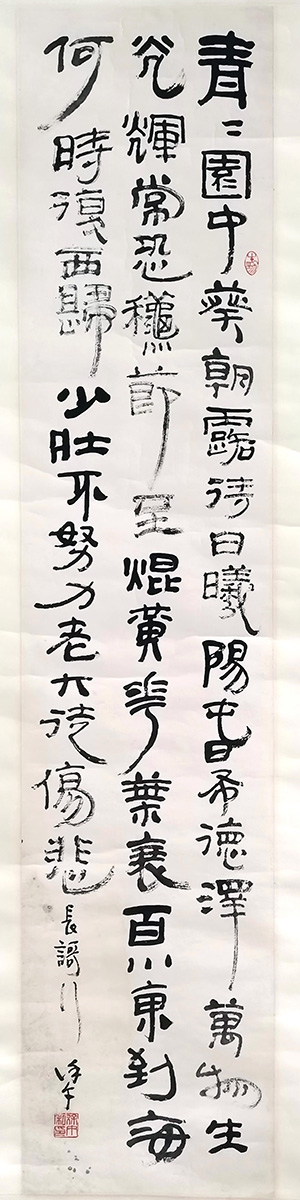 青〻園中葵朝露待日曦陽春布德澤萬物生
光輝常恐龝節至焜黃華葉衰百川東到海
何時復西歸少壯不努力老大徒傷悲 長謌行